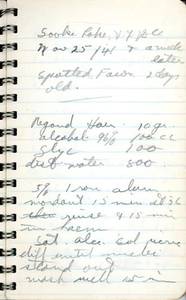 Sooke Lake, V.I. B.C.
Nov 25/41 & a week
later
Spotted Fawn 2 days
old.
Regaud Haem 10 gr
alcohol 96% 100 cc
Glyc 100
dist water 800
5% Iron alum
mordant 15 min at 36
rinse & 15 min
in haem
Sat. alc. sol picric
diff until nuclei
stand out
wash well 15 min